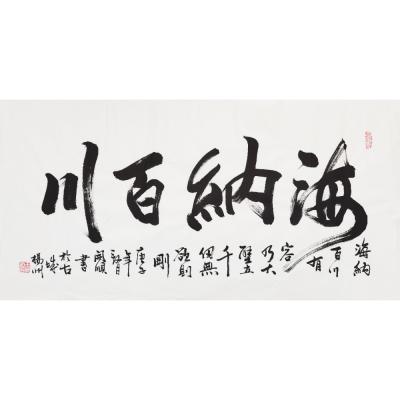 海納百川
海納
百川
有
容
乃大
壁立
千
仞無
欲則
剛
庚子
年
書
於古
城
揚州